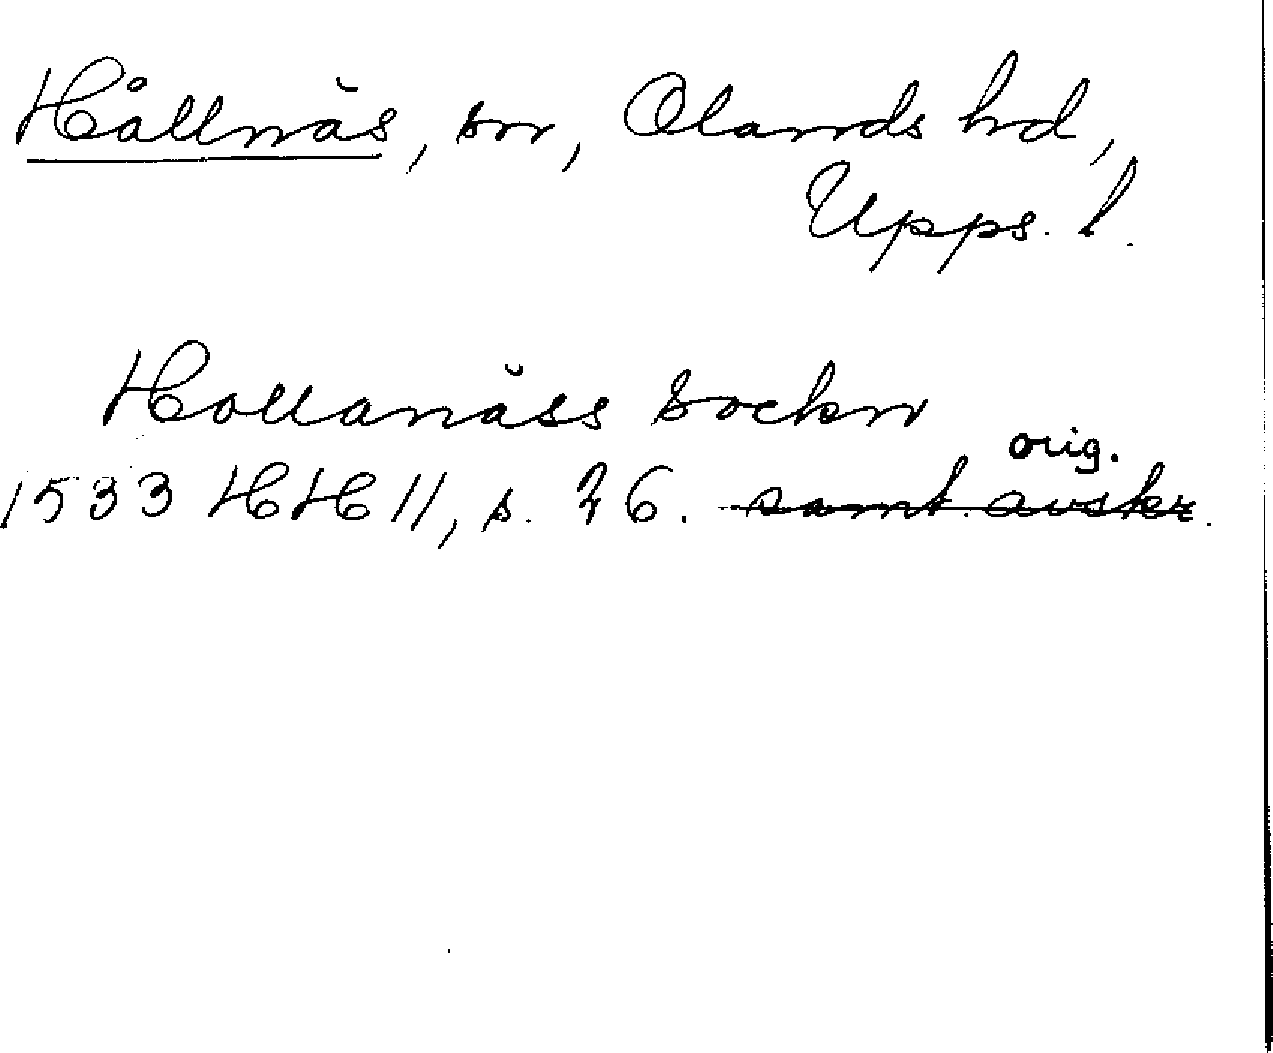 Hållnäs, sn, Olands hd,
Upps. l.
Hollanäss sockn
orig.
1533 HH 11, s. 26. samt. avskr.